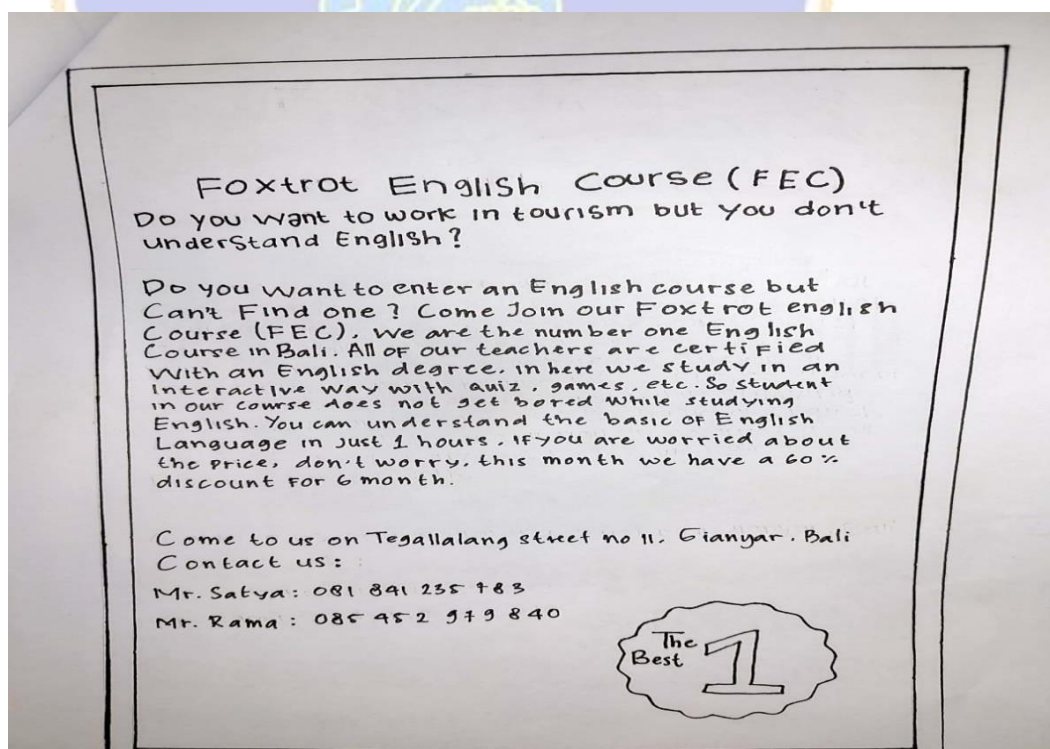 Foxtrot English Course (FEC)
Do you want to work in tourism but you don't
understand English?
Do you want to enter an English course but
Can't Find one? Come Join our Foxtrot english
Course (FEC). We are the number one English
Course in Bali. All of our teachers are certified
With an English degree. in here we study in an
Interactive way with quiz, games, etc. So student
in our course does not get bored while studying
English. You can understand the basic of English
Language in Just 1 hours. If you are worried about
the price, don't worry. this month we have a 60%
discount for 6 month.
Come to us on Tegallalang street no 11, Gianyar, Bali
Contact us:
Mr. Satya: 081 841 235 783
Mr. Rama: 085 452 979 840
The
Best 1